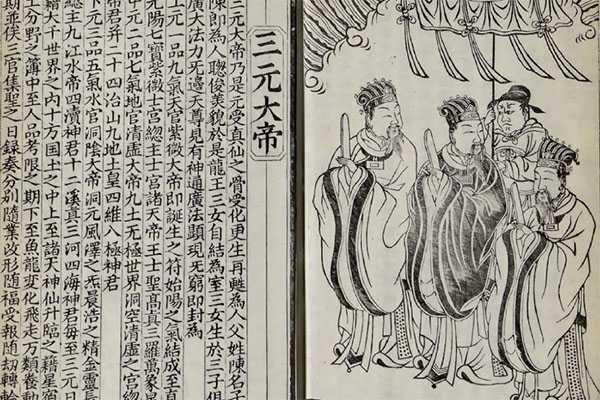 三元大帝
三元大帝乃是元受真仙之骨受化更生再甦為人父姓陳名子
陳即為人聰俊美貌於是龍王三女自結為室三女生於三子俱
廣大法力旡邊天尊見有神通廣法顯現旡窮即封為
上元一品九氣天官紫微大帝即誕生之符始陽之氣結成至真
元陽七寶紫微上宮緫主上宮諸天帝王上聖高真三羅萬象星
中元二品七氣地官清虛大帝九土无極世界洞空清虛之宮緫
帝君并二十四治山九地土皇四維八極神君
下元三品五氣水官洞陰大帝洞元風澤之炁晨浩之精金靈長
總主九江水帝四瀆神君十二溪真三河四海神君每至三元日
籍大千世界之内十方国土之中上至諸天神仙升臨之籍星宿
土分野之簿中至人品考限之期下至魚龍變化飛走万類養動
期並俟三官集聖之日録奏分別隨業改形随福受報随劫轉輪